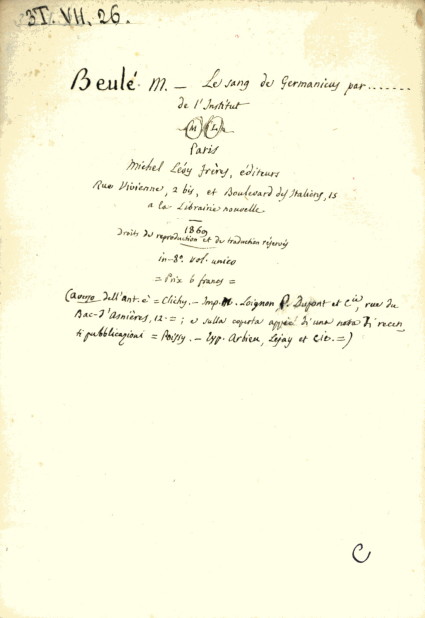 3T. VII. 26.
Beulé M. — Le sang de Germanicus par .......
de l'Institut
M L
Paris
Michel Lévy frères, éditeurs
Rue Vivienne, 2 bis, et Boulevard des Italiens, 15
a la Librairie nouvelle
1869
Droits de reproduction et de traduction réservés
in-8°. vol. unico
= Prix 6 francs =
dell'Ant. è = Clichy. — Imp. M. Loignon P. Dupont et Cie, rue du
Bac-d'Asnières, 12. = ; e sulla coperta appiè di una nota di recen
ti pubblicazioni = Poissy. — Typ. Arbieu, Lejay et Cie. = )
C